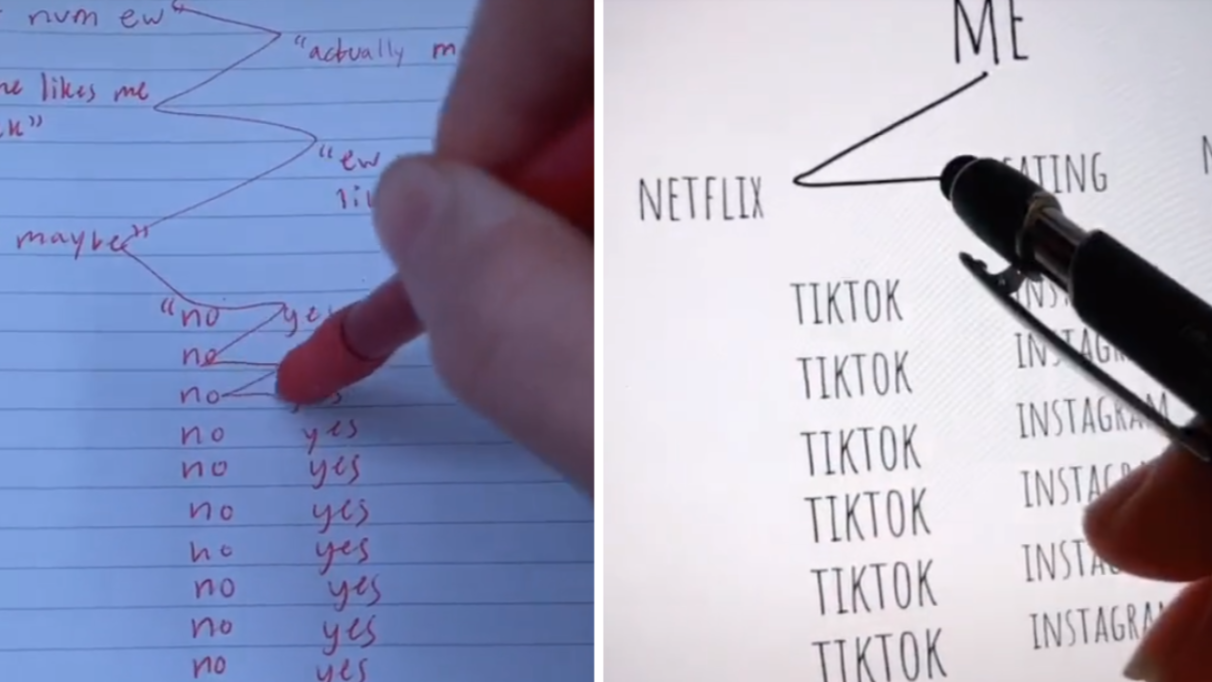 num ew"
"actually m
likes me
"ew
maybe"
"no yes
no
no yes
no yes
no yes
no yes
no yes
no yes
no yes
no yes
ME
NETFLIX EATING
TIKTOK
TIKTOK INSTAGRAM
TIKTOK INSTAGRAM
TIKTOK INSTAGRAM
TIKTOK INSTAGRAM
TIKTOK INSTAGRAM